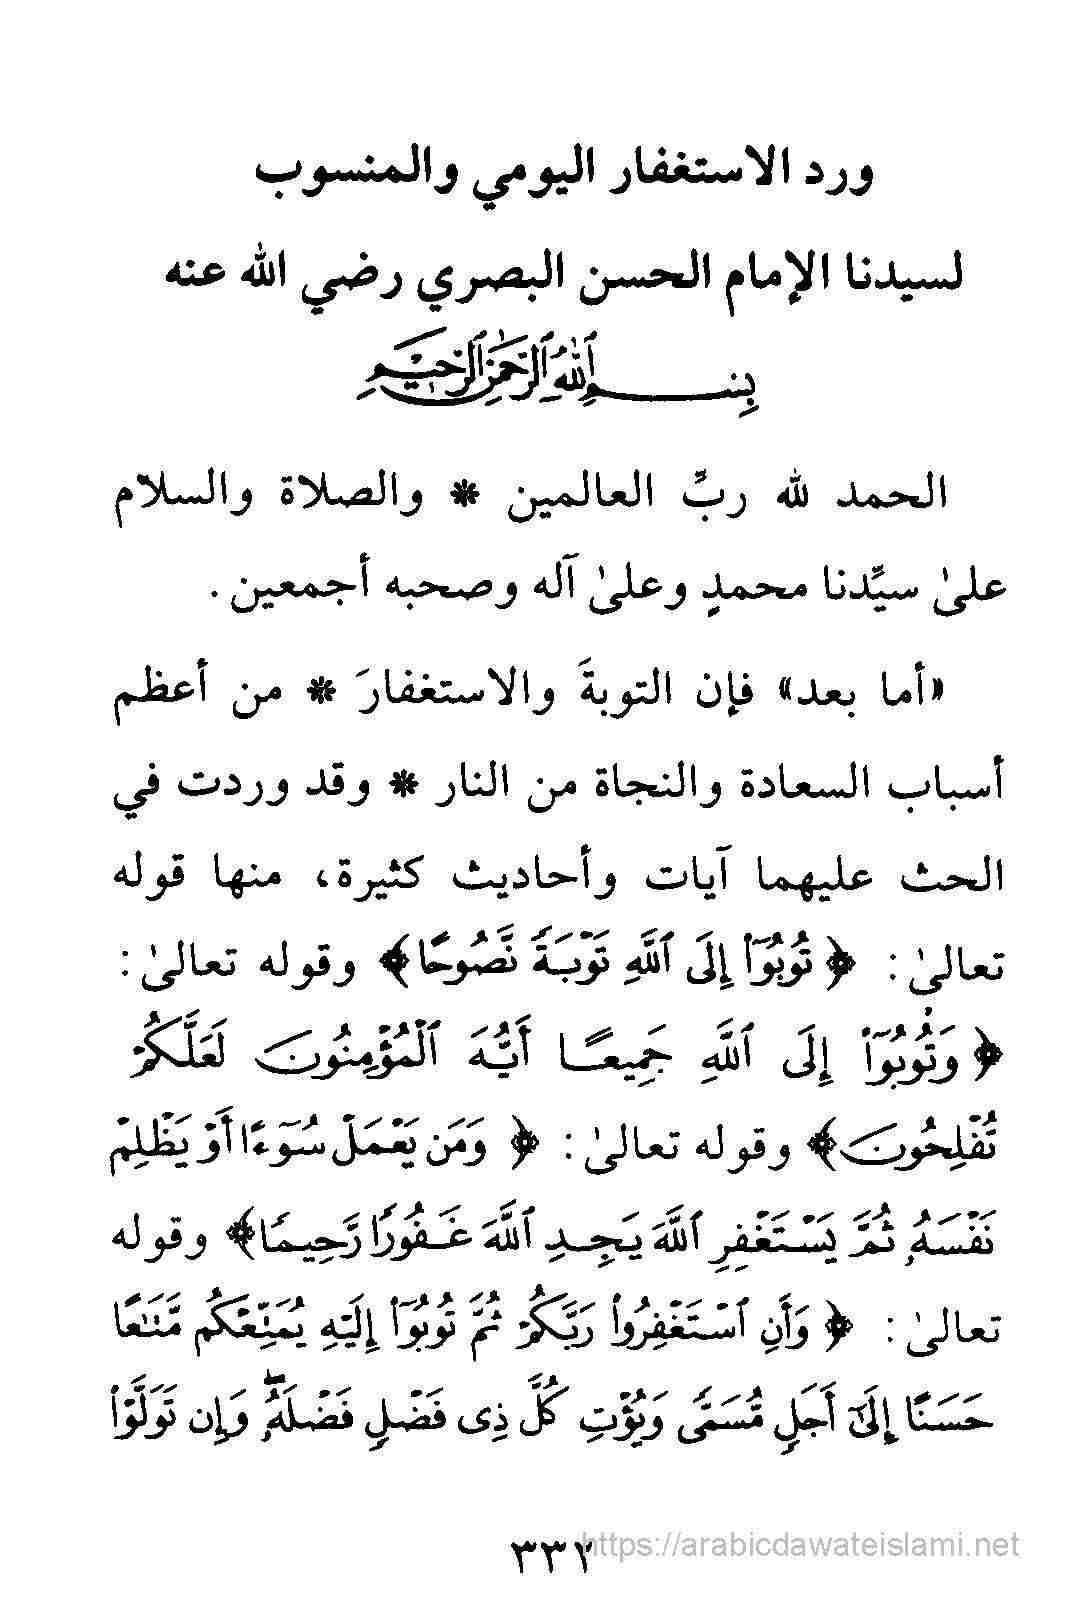 ورد الاستغفار اليومي والمنسوب
لسيدنا الإمام الحسن البصري رضي الله عنه
بِسْمِ ٱللَّهِ ٱلرَّحْمَٰنِ ٱلرَّحِيمِ
الحمد لله ربِّ العالمين * والصلاة والسلام
علىٰ سيِّدنا محمدٍ وعلىٰ آله وصحبه أجمعين .
«أما بعد» فإن التوبةَ والاستغفارَ * من أعظم
أسباب السعادة والنجاة من النار * وقد وردت في
الحث عليهما آيات وأحاديث كثيرة، منها قوله
تعالىٰ: ﴿ تُوبُوٓا۟ إِلَى ٱللَّهِ تَوْبَةً نَّصُوحًا﴾ وقوله تعالىٰ:
﴿ وَتُوبُوٓا۟ إِلَى ٱللَّهِ جَمِيعًا أَيُّهَ ٱلْمُؤْمِنُونَ لَعَلَّكُمْ
تُفْلِحُونَ﴾ وقوله تعالىٰ: ﴿ وَمَن يَعْمَلْ سُوٓءًا أَوْ يَظْلِمْ
نَفْسَهُۥ ثُمَّ يَسْتَغْفِرِ ٱللَّهَ يَجِدِ ٱللَّهَ غَفُورًا رَّحِيمًا﴾ وقوله
تعالىٰ: ﴿ وَأَنِ ٱسْتَغْفِرُوا۟ رَبَّكُمْ ثُمَّ تُوبُوٓا۟ إِلَيْهِ يُمَتِّعْكُم مَّتَٰعًا
حَسَنًا إِلَىٰٓ أَجَلٍ مُّسَمًّى وَيُؤْتِ كُلَّ ذِى فَضْلٍ فَضْلَهُۥۖ وَإِن تَوَلَّوْا۟
٣٣٢
https://arabicdawateislami.net